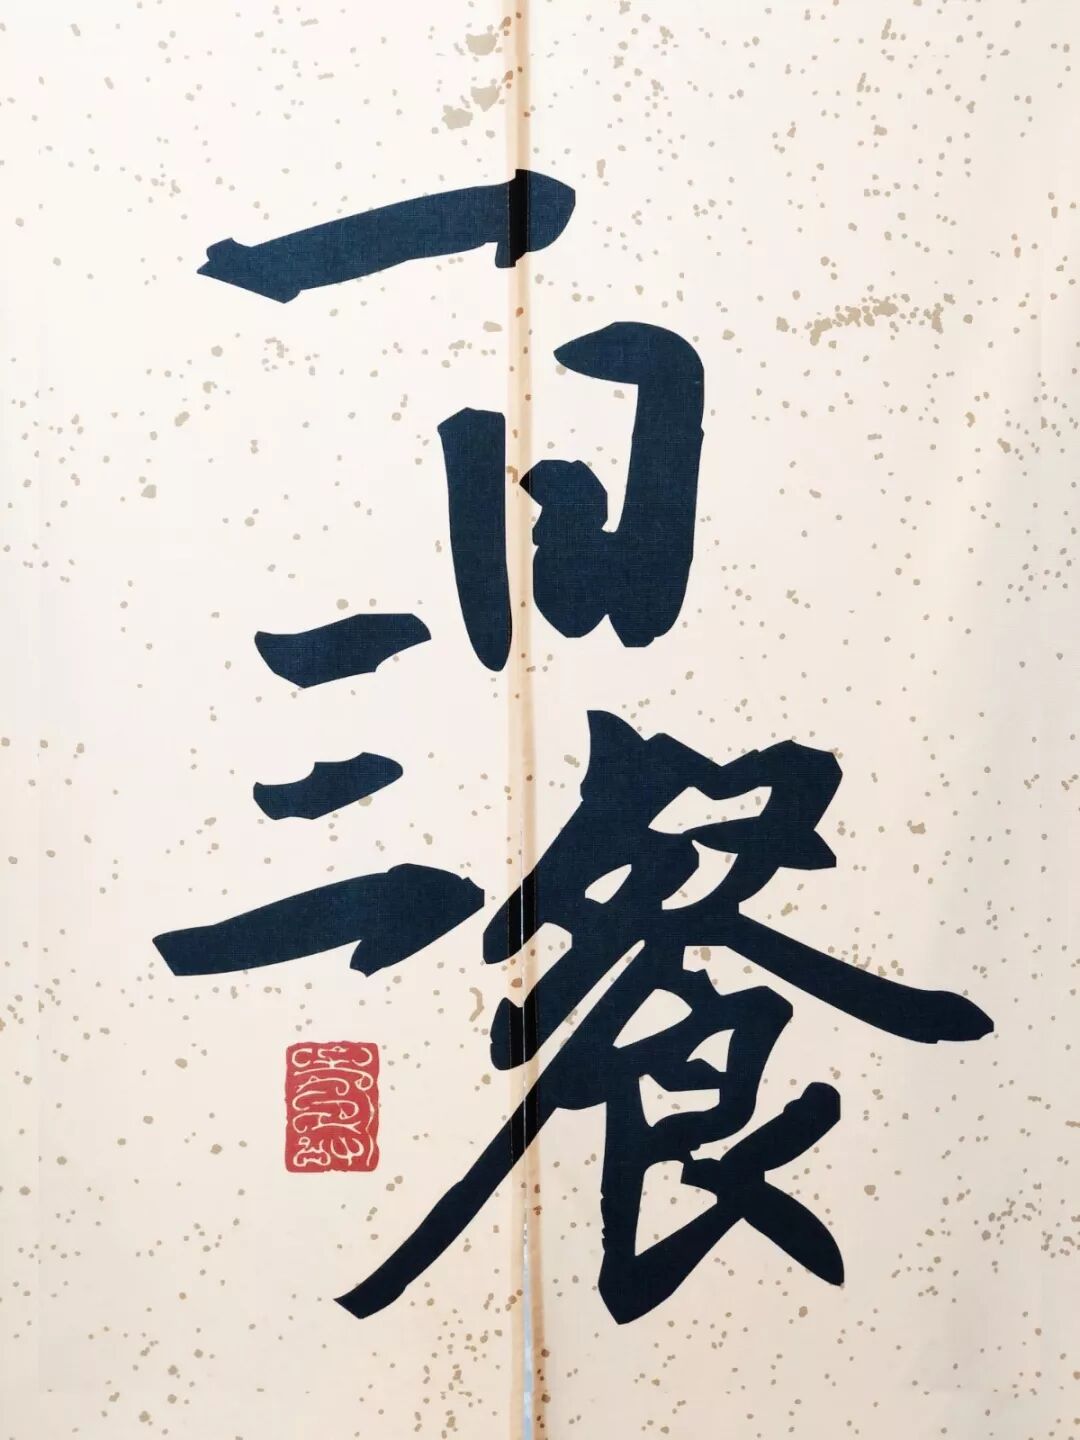 一日
三餐